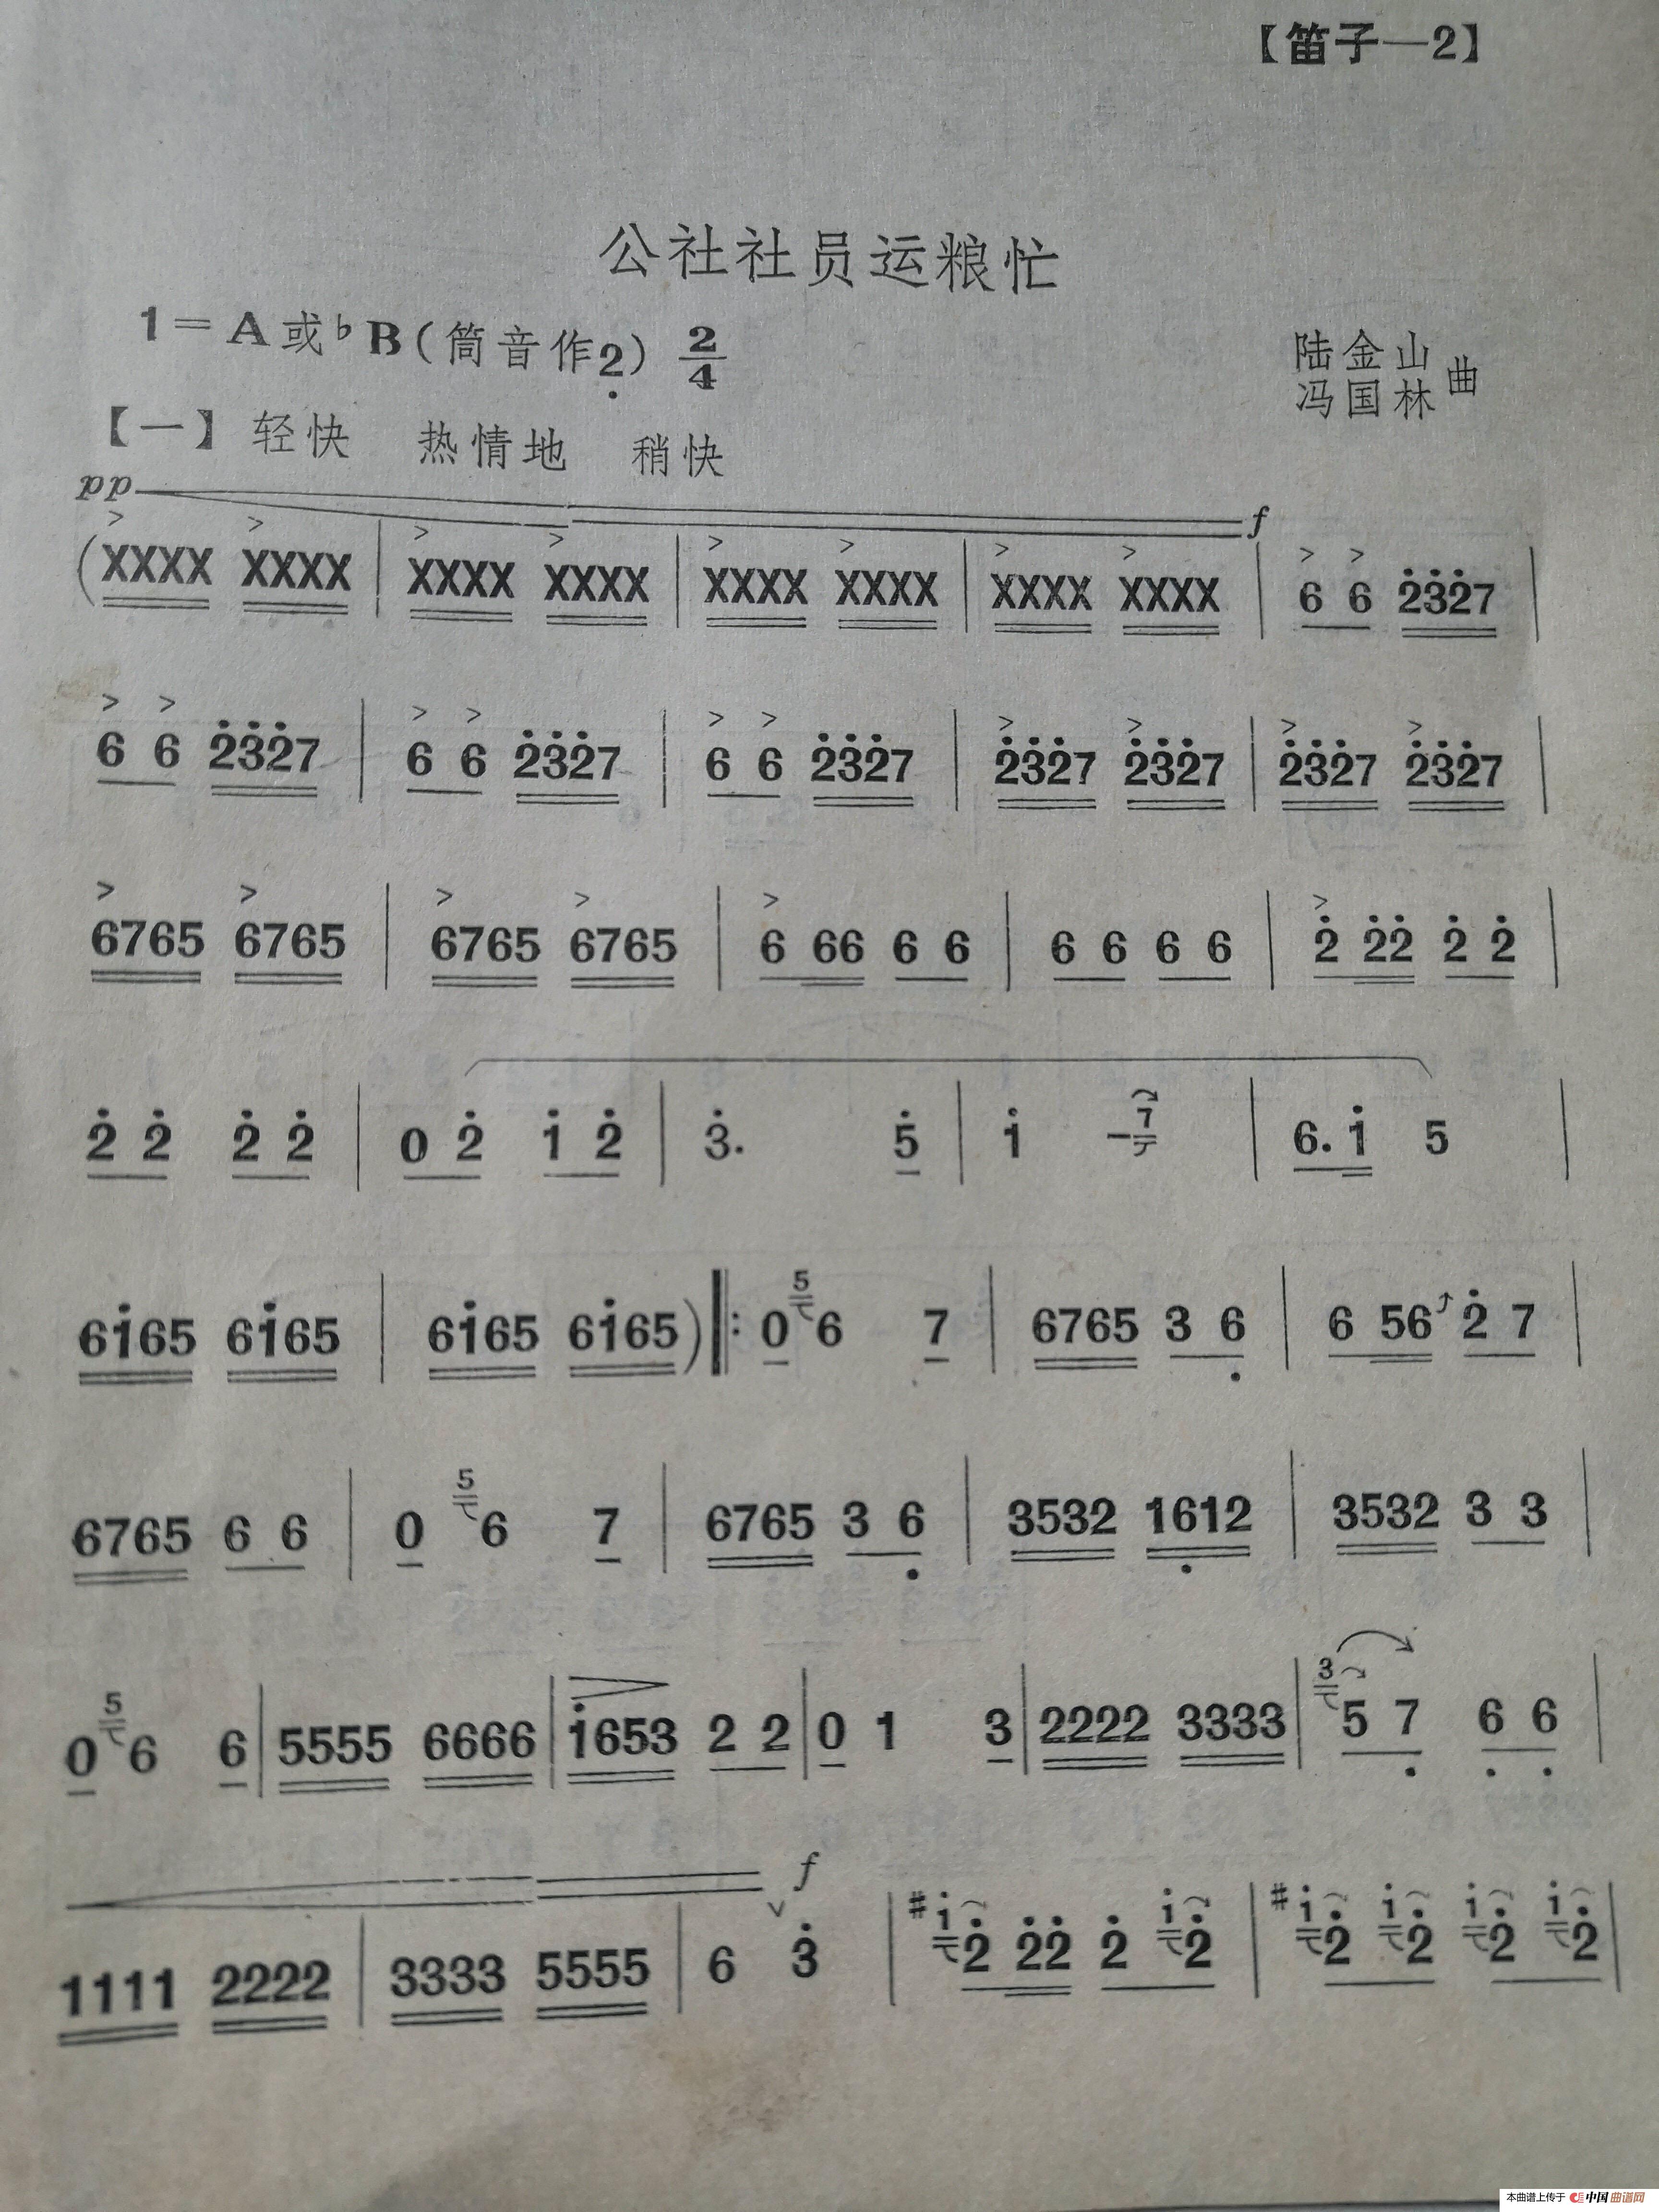 【笛子—2】
公社社员运粮忙
1=A或♭B(筒音作2̣) 2/4
陆金山
冯国林 曲
【一】 轻快 热情地 稍快
pp f
(XXXX XXXX | XXXX XXXX | XXXX XXXX | XXXX XXXX | 6 6 2̇3̇2̇7 |
6 6 2̇3̇2̇7 | 6 6 2̇3̇2̇7 | 6 6 2̇3̇2̇7 | 2̇3̇2̇7 2̇3̇2̇7 | 2̇3̇2̇7 2̇3̇2̇7 |
6765 6765 | 6765 6765 | 6 66 6 6 | 6 6 6 6 | 2̇ 2̇2̇ 2̇ 2̇ |
2̇ 2̇ 2̇ 2̇ | 0 2̇ 1̇ 2̇ | 3̇. 5̇ | 1̇ – 7 | 6. 1̇ 5 |
61̇65 61̇65 | 61̇65 61̇65) ‖: 0 5 6 7 | 6765 3 6̣ | 6 56 2̇ 7 |
6765 6 6 | 0 5 6 7 | 6765 3 6̣ | 3532 16̣12 | 3532 3 3 |
0 5 6 6 | 5555 6666 | 1̇653 2 2 | 0 1 3 | 2222 3333 | 3 5 7̣ 6̣ 6̣ |
f
1111 2222 | 3333 5555 | 6 3̇ | #1̇ 2̇ 2̇2̇ 2̇ 1̇ 2̇ | #1̇ 2̇ 1̇ 2̇ 1̇ 2̇ 1̇ 2̇ |
本曲谱上传于 中国曲谱网